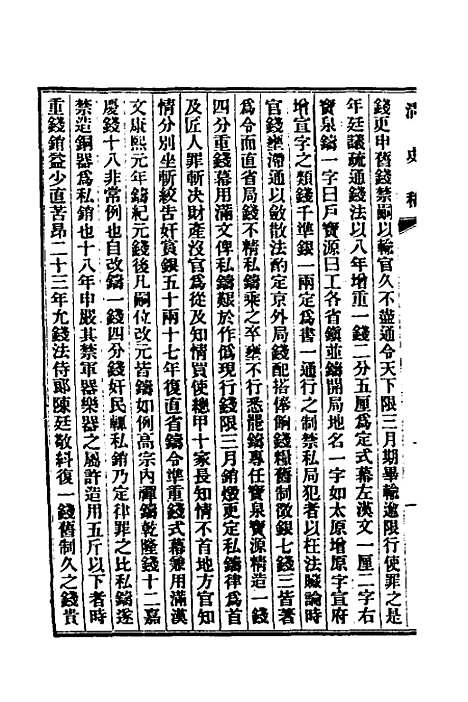 清史稿
錢更申舊錢禁嗣以輸官久不盡通令天下限三月期畢輸逾限行使罪之是
年廷議疏通錢法以八年增重一錢二分五厘為定式幕左漢文一厘二字右
寶泉鑄一字曰戶寶源曰工各省鎮並鑄開局地名一字如太原增原字宣府
增宣字之類錢千準銀一兩定為書一通行之制禁私局犯者以枉法贓論時
官錢壅滯通以斂散法酌定京外局錢配搭俸餉錢糧舊制徵銀七錢三皆著
為令而直省局錢不精私鑄乘之卒壅不行悉罷鑄專任寶泉寶源精造一錢
四分重錢幕用滿文俾私鑄艱於作偽現行錢限三月銷燬更定私鑄律為首
及匠人罪斬決財產沒官為從及知情買使總甲十家長知情不首地方官知
情分別坐斬絞告奸賞銀五十兩十七年復直省鑄令準重錢式幕兼用滿漢
文康熙元年鑄紀元錢後凡嗣位改元皆鑄如例高宗內禪鑄乾隆錢十二嘉
慶錢十八非常例也自改鑄一錢四分錢奸民輒私銷乃定律罪之比私鑄遂
禁造銅器為私銷也十八年申嚴其禁軍器樂器之屬許造用五斤以下者時
重錢銷益少直苦昂二十三年允錢法侍郎陳廷敬糾復一錢舊制久之錢貴